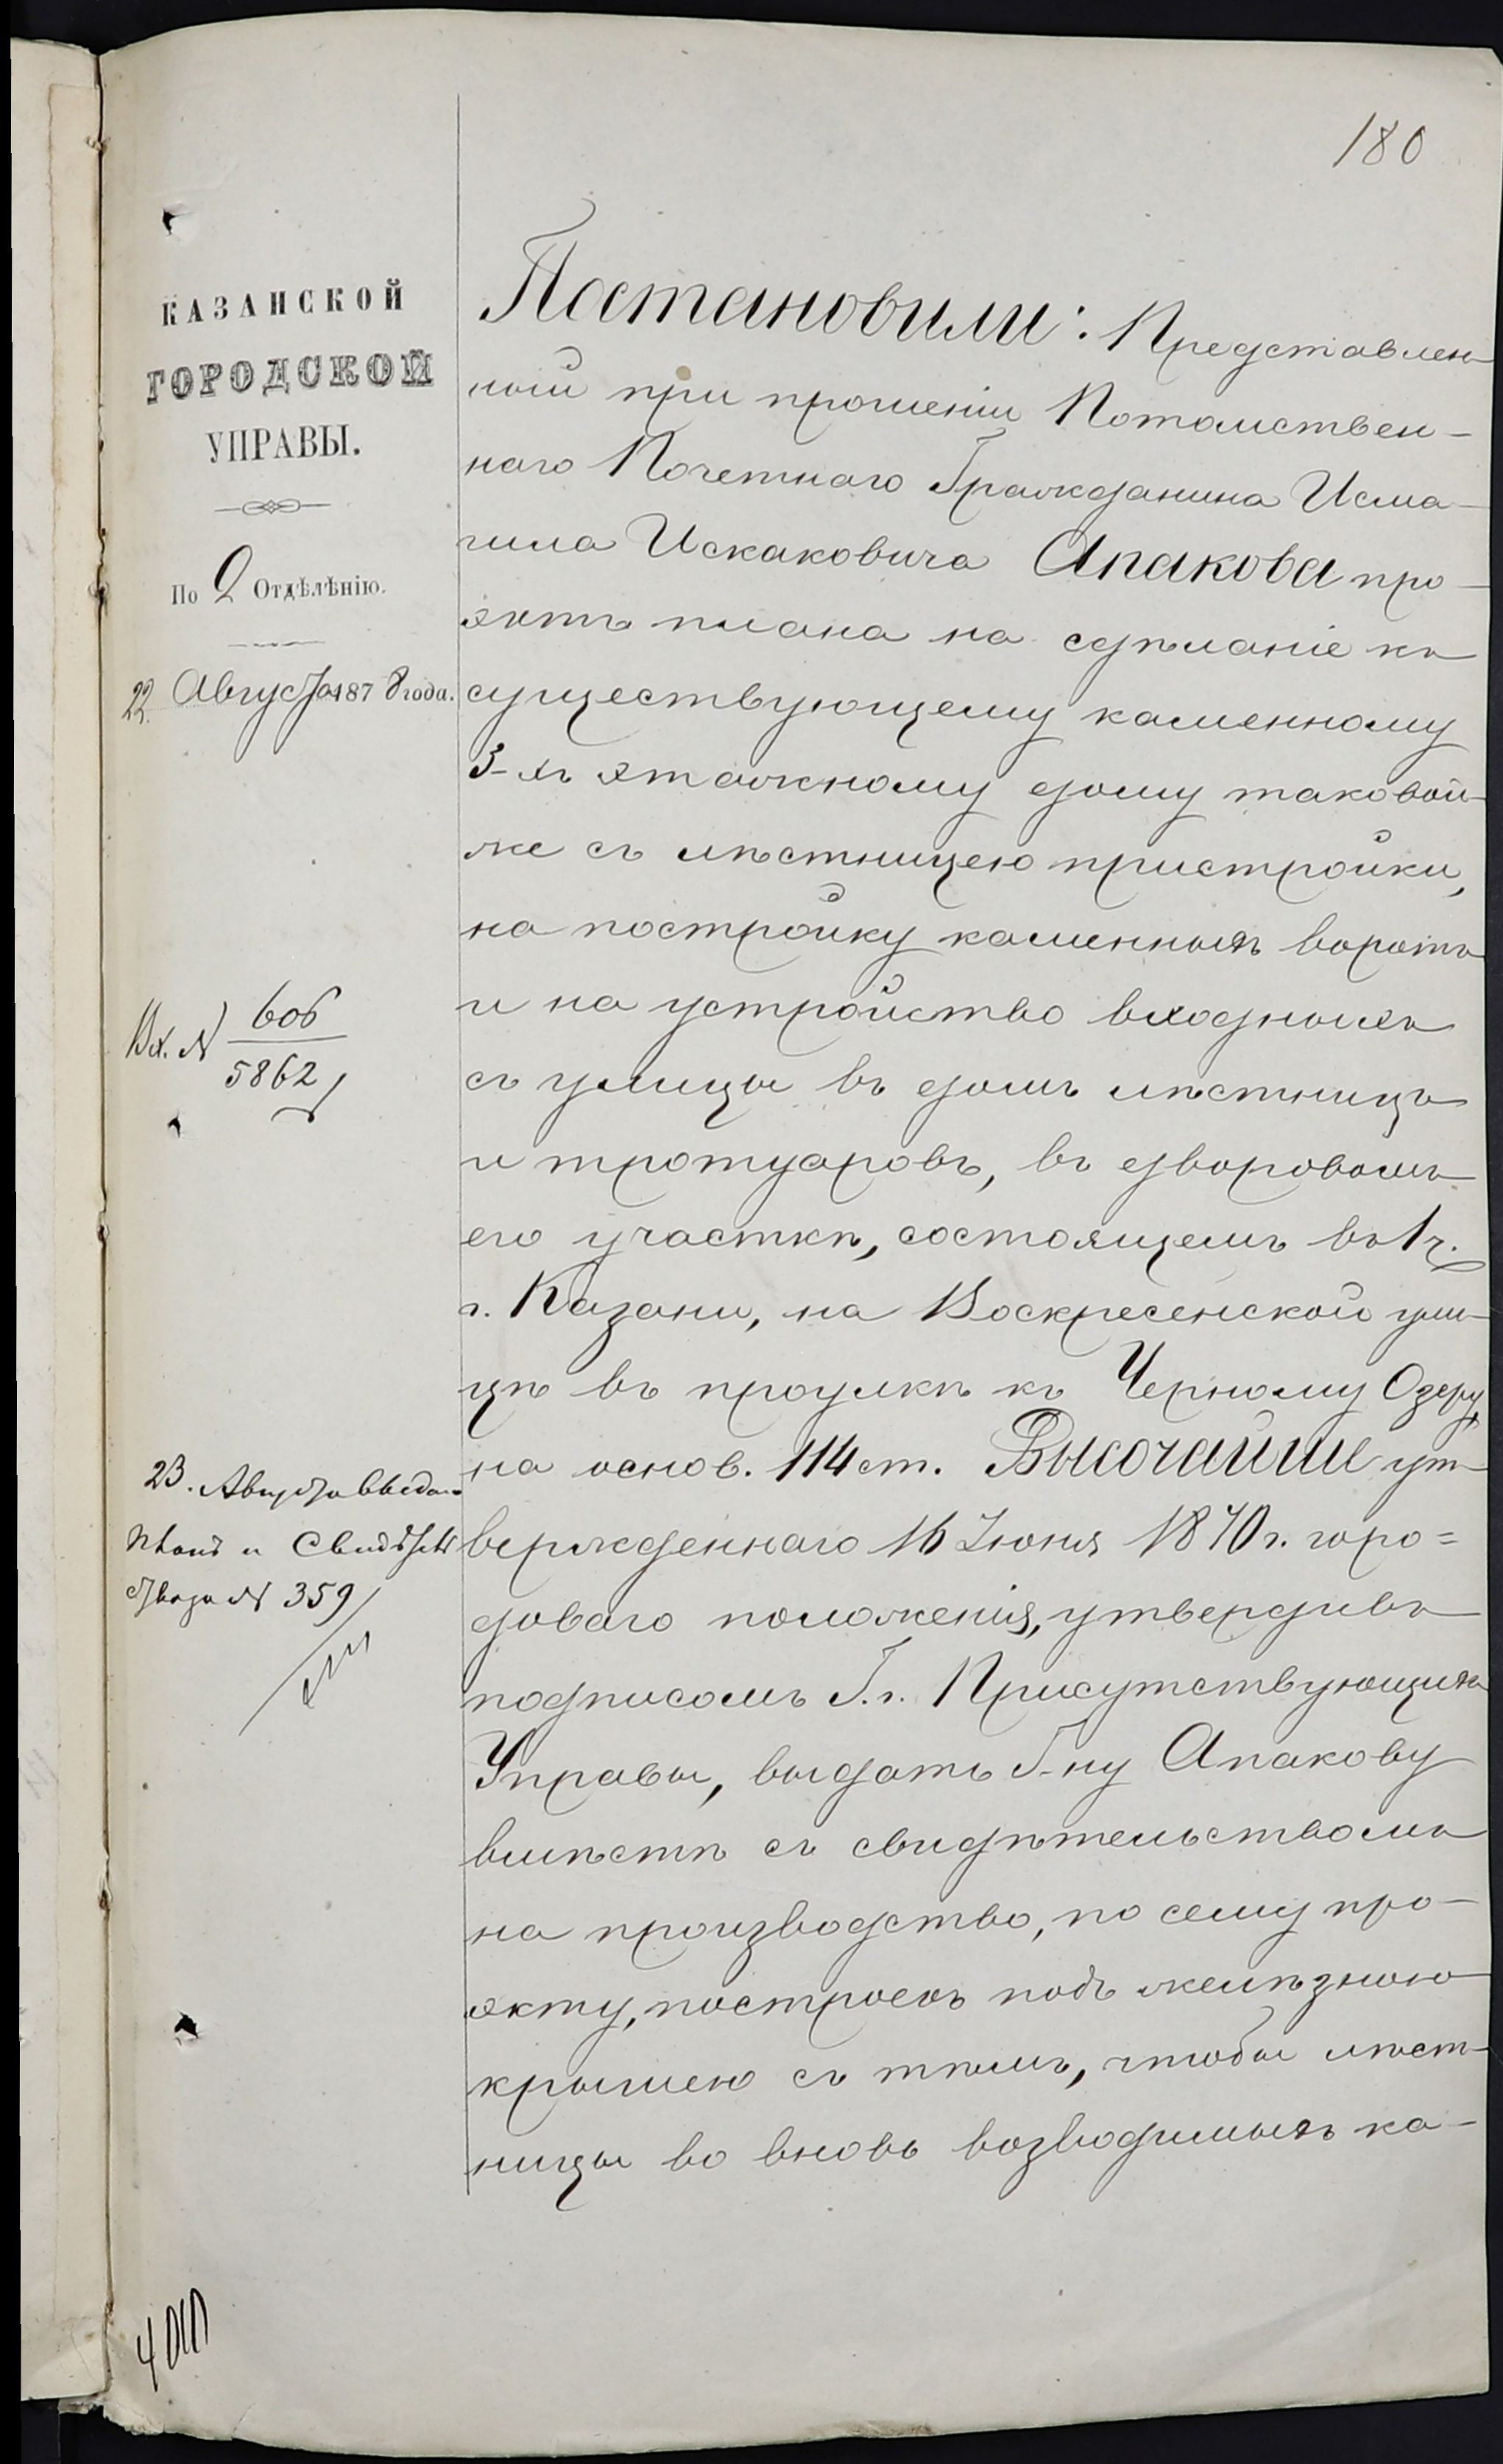 180
КАЗАНСКОЙ
ГОРОДСКОЙ
УПРАВЫ.
По 2 Отдѣленію.
22 Августа 1878 года.
Вх. №
606
5862
23. Августа выдан
планъ и Свидѣтель
ство за № 359
Постановили: Представлен
ный при прошеніи Потомствен-
наго Почетнаго Гражданина Исма-
гила Искаковича Апакова про-
эктъ плана на сдѣланіе къ
существующему каменному
3-хъ этажному дому таковой
же съ лѣстницею пристройки,
на постройку каменныхъ воротъ
и на устройство входныхъ
съ улицы въ домъ лѣстницъ
и тротуаровъ, въ дворовомъ
его участкѣ, состоящемъ въ 1 ч.
г. Казани, на Воскресенской ули-
цѣ въ проулкѣ къ Черному Озеру,
на основ. 114 ст. Высочайше ут
вержденнаго 16 Іюня 1870 г. горо=
доваго положенія, утвердивъ
подписомъ Г.г. Присутствующихъ
Управы, выдать Г-ну Апакову
вмѣстѣ съ свидѣтельствомъ
на производство, по сему про-
экту, построекъ подъ желѣзною
крышею съ тѣмъ, чтобы лѣст-
ницы во вновь возводимыхъ ка-